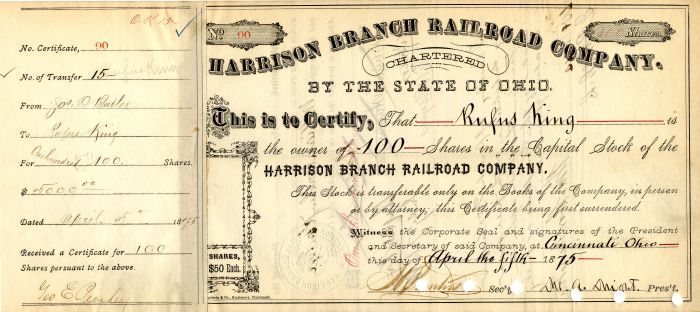 O.K.
No. Certificate, 90
No. of Transfer 15
From Jos. O. Butler
To Rufus King
For One hundred 100. Shares.
$ 5000 00
Dated April 5th 1875
Received a Certificate for 100
Shares pursuant to the above.
Geo E
No 90 Shares.
HARRISON BRANCH RAILROAD COMPANY.
CHARTERED
BY THE STATE OF OHIO.
This is to Certify, That Rufus King is
the owner of 100 Shares in the Capital Stock of the
HARRISON BRANCH RAILROAD COMPANY.
This Stock is transferable only on the Books of the Company, in person
or by attorney; this Certificate being first surrendered.
Witness the Corporate Seal and signatures of the President
and Secretary of said Company, at Cincinnati Ohio
this day of April the fifth 1875
SHARES,
$50 Each.
Sec'y. Pres't.